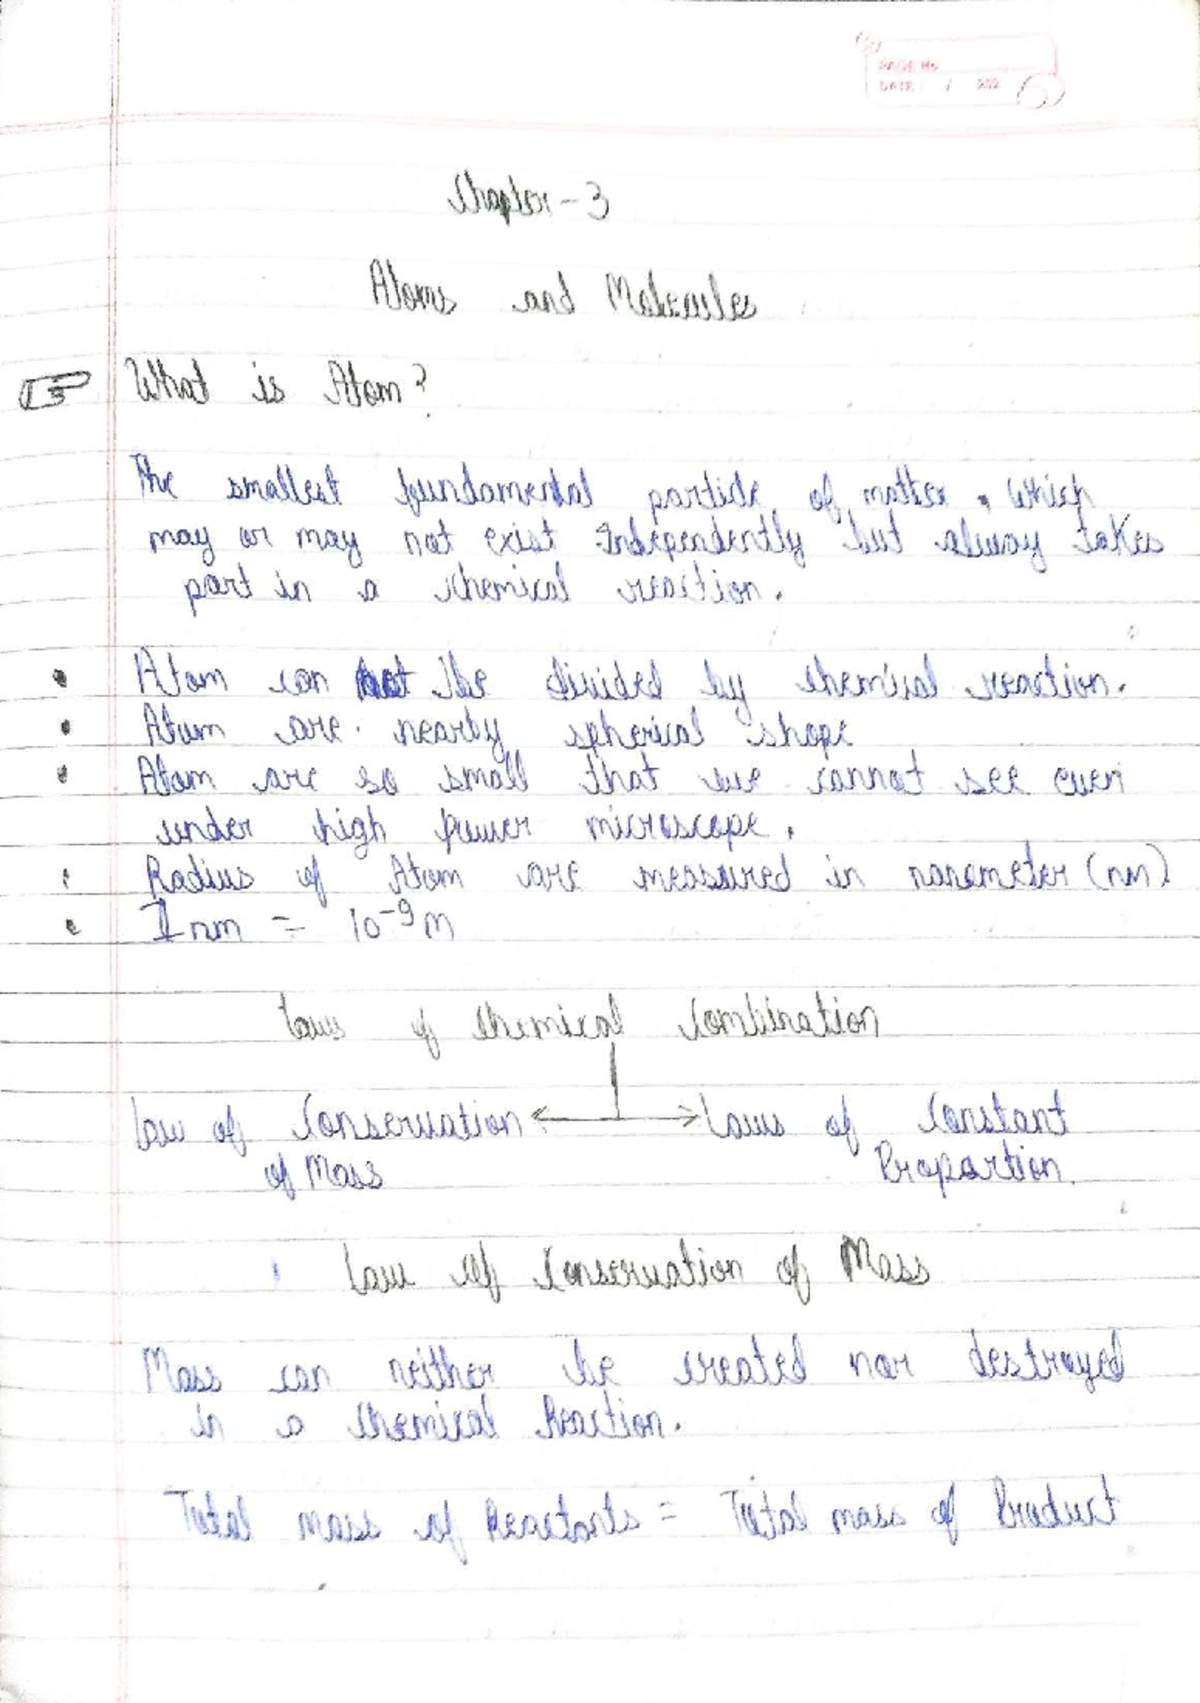 PAGE No
DATE / 202
Chapter - 3
Atoms and Molecules
What is Atom?
The smallest fundamental particle of matter. Which
may or may not exist Independently but alway takes
part in a chemical reaction.
Atom can not be divided by chemical reaction.
Atom are nearby spherical shape
Atom are so small that we cannot see even
under high power microscope.
Radius of Atom are measured in nanometer (nm)
1 nm = 10⁻⁹ m
Laws of Chemical Combination
Law of Conservation Laws of Constant
of Mass Proportion.
Law Of Conservation of Mass
Mass can neither be created nor destroyed
in a Chemical Reaction.
Total mass of Reactants = Total mass of Product